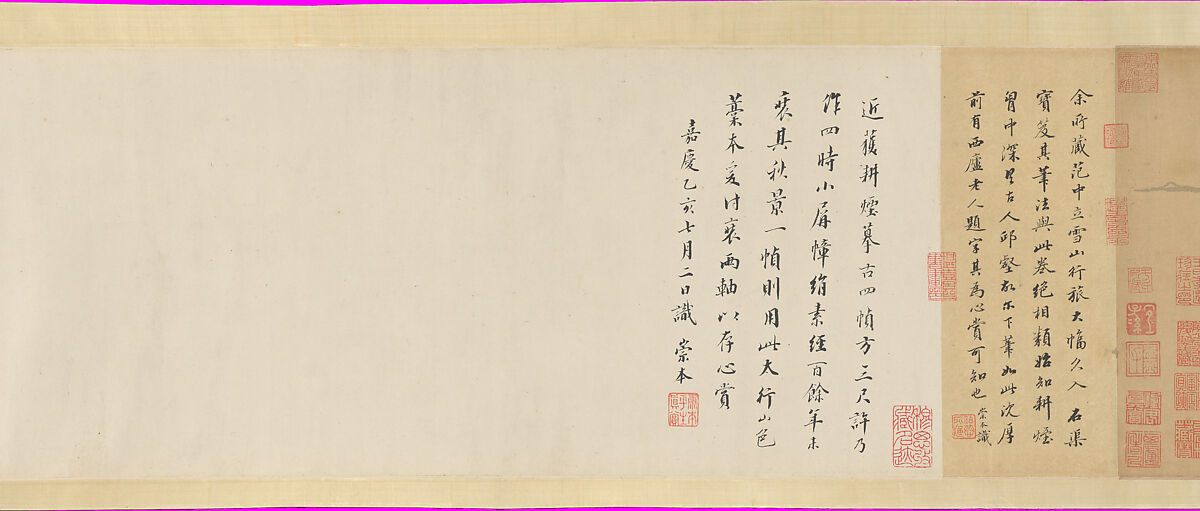 余所藏范中立雪山行旅大幅久入　石渠
寶笈其筆法與此卷絕相類始知耕煙
胷中深得古人邱壑故爾下筆如此沈厚
前有西廬老人題字其為心賞可知也 崇本識
近獲耕煙摹古四幀方三尺許乃
作四時小屏幛絹素經百餘年未
裝其秋景一幀則用此太行山色
藁本爰付裝兩軸以存心賞
嘉慶乙亥七月二日識 崇本